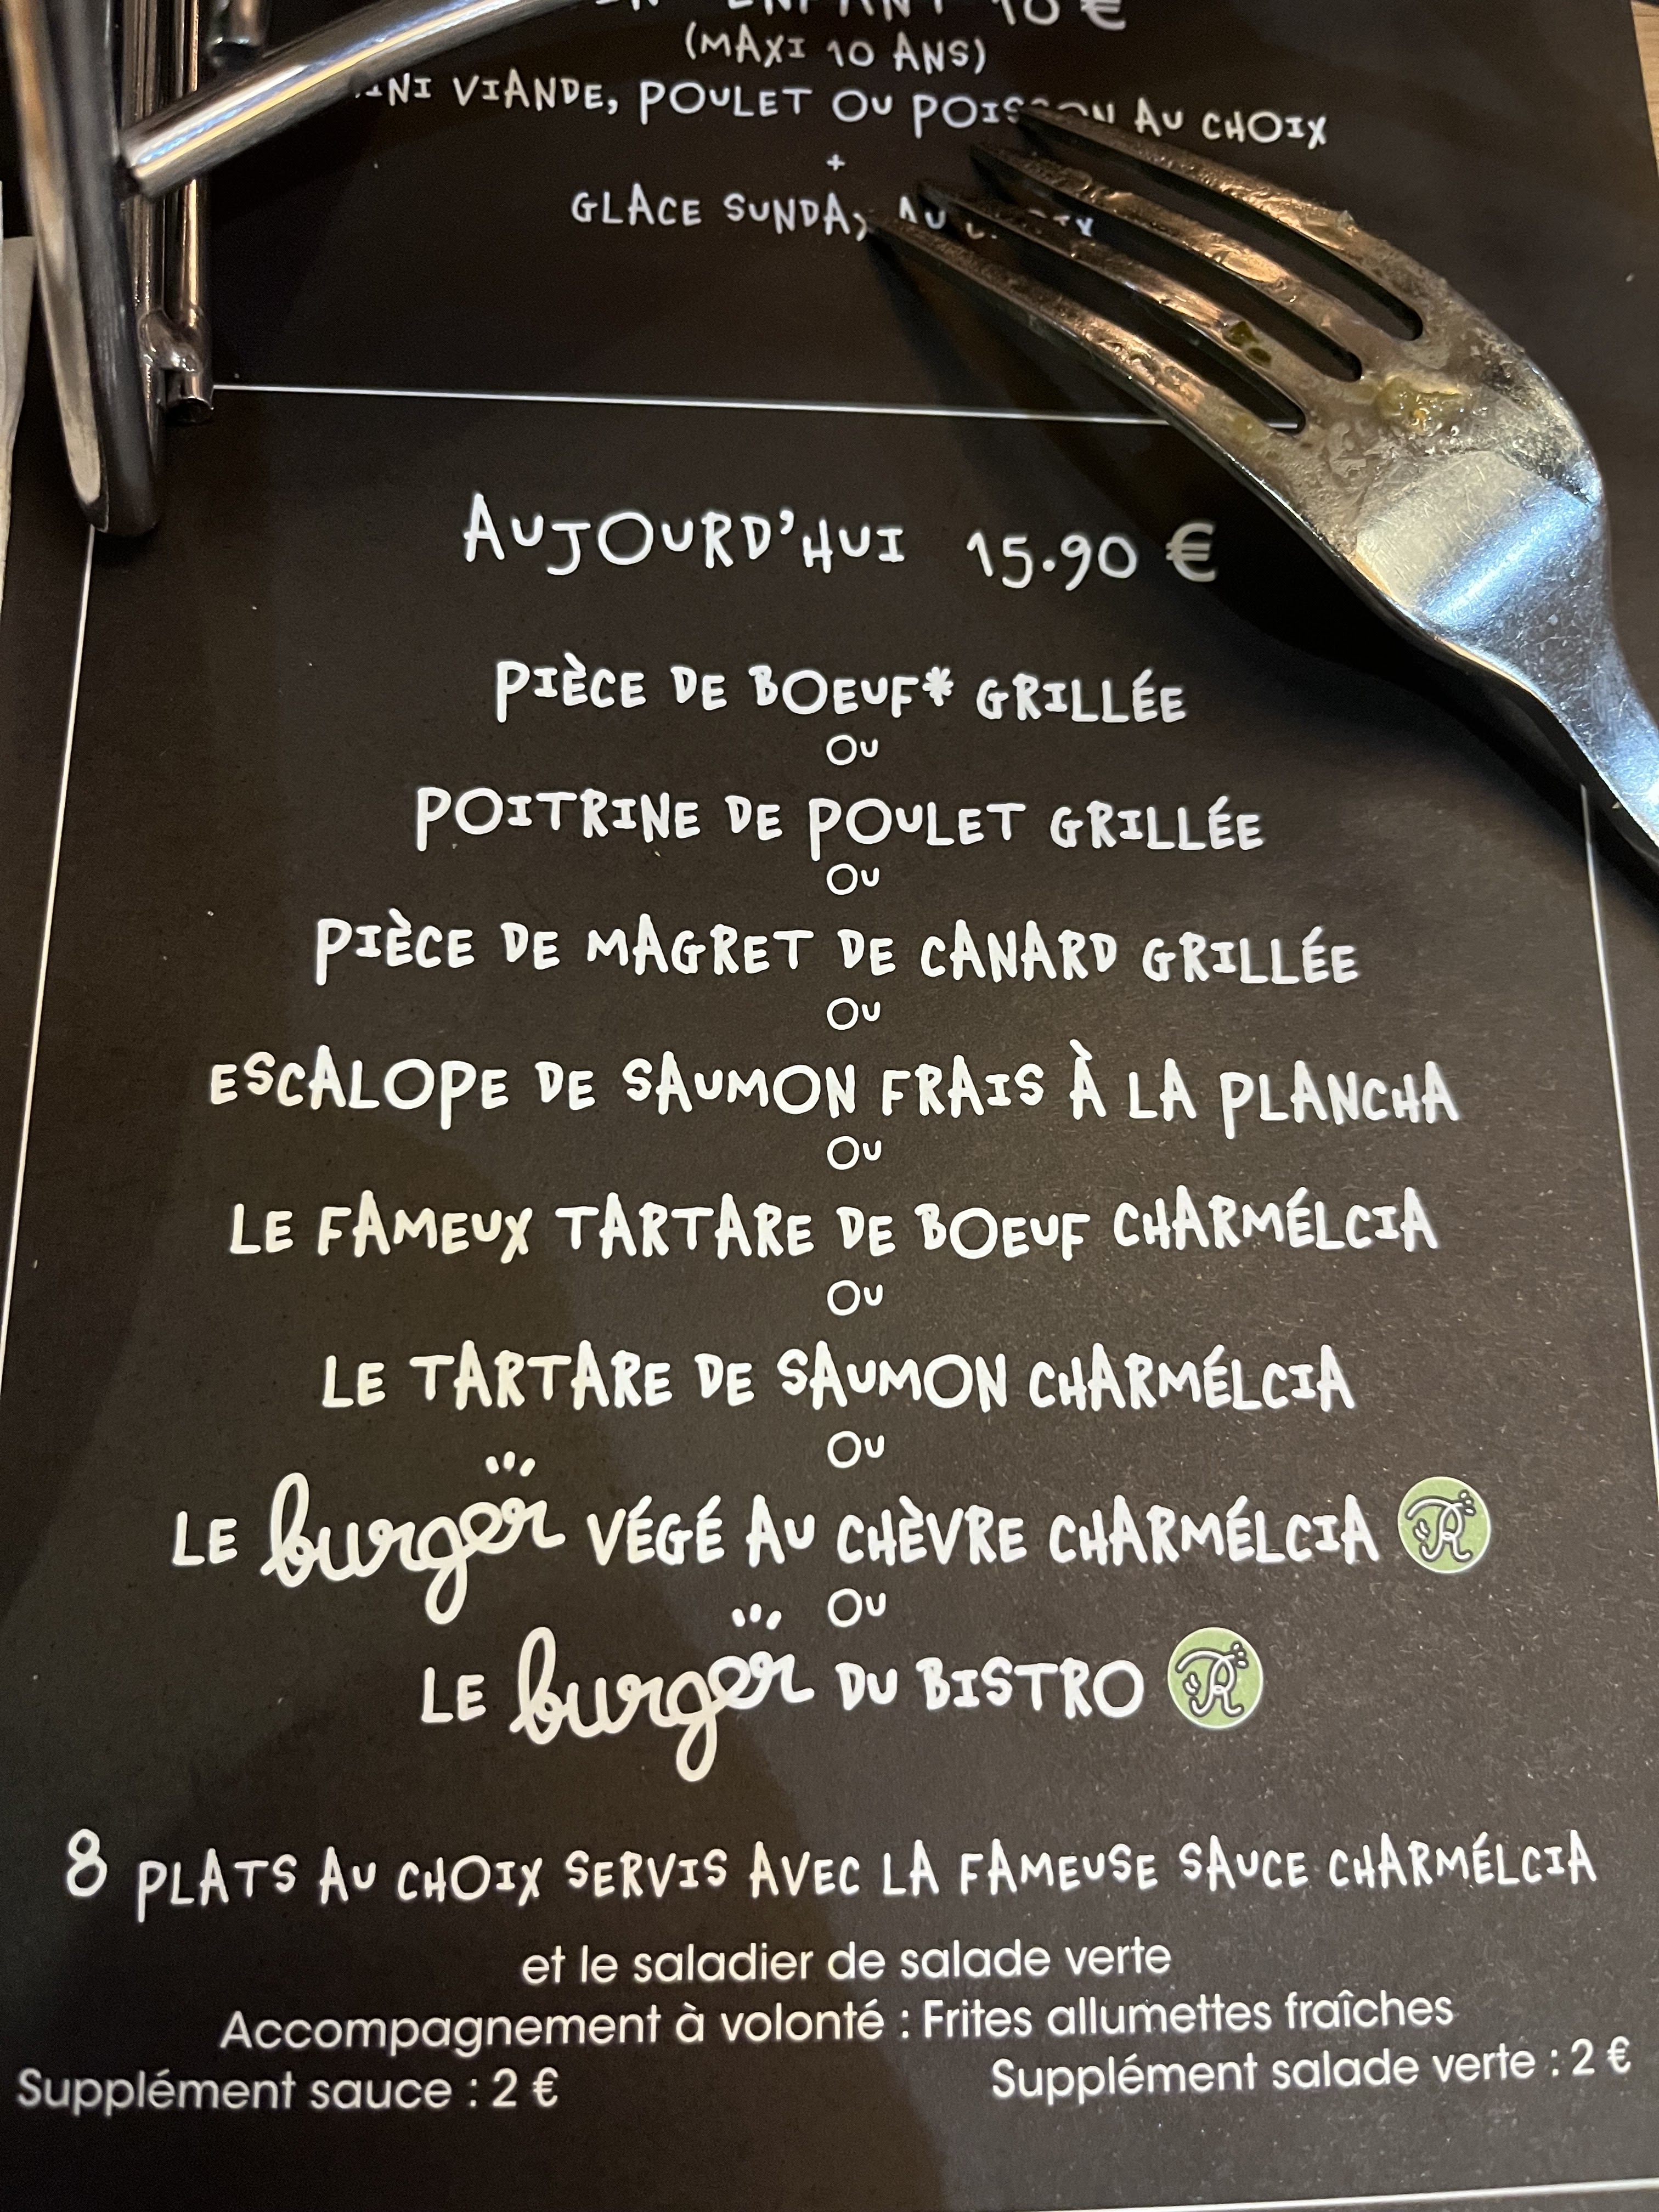 ENFANT 10 €
(MAXI 10 ANS)
VIANDE, POULET OU POISSON AU CHOIX
+
GLACE SUNDAY AU
AUJOURD'HUI 15.90 €
PIÈCE DE BOEUF* GRILLÉE
OU
POITRINE DE POULET GRILLÉE
OU
PIÈCE DE MAGRET DE CANARD GRILLÉE
OU
ESCALOPE DE SAUMON FRAIS À LA PLANCHA
OU
LE FAMEUX TARTARE DE BOEUF CHARMÉLCIA
OU
LE TARTARE DE SAUMON CHARMÉLCIA
OU
LE burger VÉGÉ AU CHÈVRE CHARMÉLCIA R
OU
LE burger DU BISTRO R
8 PLATS AU CHOIX SERVIS AVEC LA FAMEUSE SAUCE CHARMÉLCIA
et le saladier de salade verte
Accompagnement à volonté : Frites allumettes fraîches
Supplément sauce : 2 € Supplément salade verte : 2 €